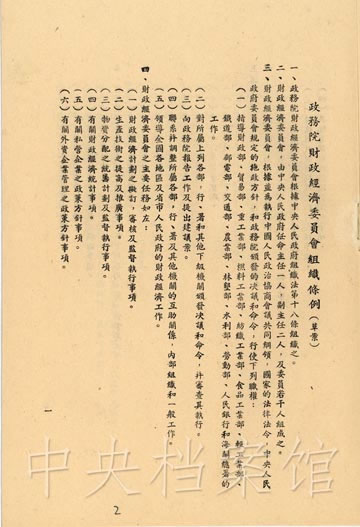 政務院財政經濟委員會組織條例（草案）
一、政務院財政經濟委員會根據中央人民政府組織法第十八條組織之。
二、財政經濟委員會，由中央人民政府任命主任一人，副主任二人，及委員若干人組成之。
三、財政經濟委員會，根據並為執行中國人民政治協商會議共同綱領，國家的法律法令，中央人民
政府委員會規定的施政方針，和政務院頒發的决議和命令，行使下列職權：
（一）指導財政部、貿易部、重工業部、燃料工業部、紡織工業部、食品工業部、輕工業部、
鐵道部、郵電部、交通部、農業部、林墾部、水利部、勞動部、人民銀行和海關總署的
工作。
（二）對所屬上列各部，行、署和其他下級機關頒發决議和命令，并審查其執行。
（三）向政務院報告工作及提出建議案。
（四）聯系并調整所屬各部、行、署及其他機關的互助關係，內部組織和一般工作。
（五）領導全國各地區及省市人民政府的財政經濟工作。
四、財政經濟委員會之主要任務如左：
（一）財政經濟計劃之擬訂，審核及監督執行事項。
（二）生產技術之提高及推廣事項。
（三）物資分配之統籌計劃及監督執行事項。
（四）有關財政經濟統計事項。
（五）有關私營企業之政策方針事項。
（六）有關外資企業管理之政策方針事項。
一
中央档案馆
2